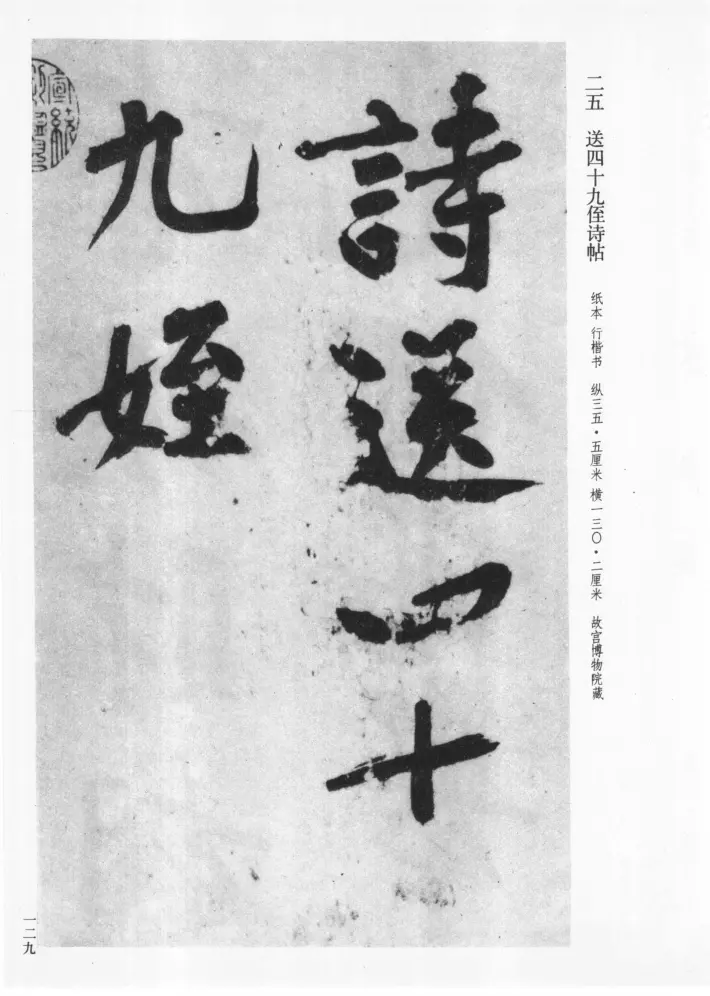 二五 送四十九侄诗帖
纸本 行楷书 纵三五·五厘米 横一三〇·二厘米 故宫博物院藏
詩送四十
九姪
一二九